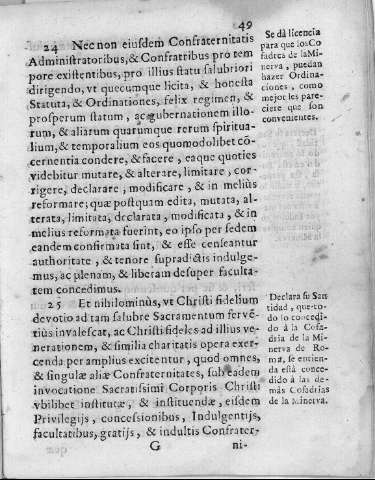 49
24 Nec non eiusdem Confraternitatis
Administratoribus, & Confratribus pro tem
pore existentibus, pro illius statu salubriori
dirigendo, vt quecumque licita, & honesta
Statuta, & Ordinationes, felix regimen, &
prosperum statum, ac gubernationem illo-
rum, & aliarum quarumque rerum spiritua-
lium, & temporalium eos quomodolibet cō-
cernentia condere, & facere, eaque quoties
videbitur mutare, & alterare, limitare, cor-
rigere, declarare, modificare, & in meliùs
reformare; quæ postquam edita, mutata, al-
terata, limitata, declarata, modificata, & in
melius reformata fuerint, eo ipso per sedem
eandem confirmata sint, & esse censeantur
authoritate, & tenore supradictis indulge-
mus, ac plenam, & liberam desuper faculta-
tem concedimus.
25 Et nihilominùs, vt Christi fidelium
devotio ad tam salubre Sacramentum fervē-
tiùs invalescat, ac Christi fideles ad illius ve-
nerationem, & similia charitatis opera exer-
cenda per amplius excitentur, quod omnes,
& singulæ aliæ Confraternitates, sub eadem
invocatione Sacratissimi Corporis Christi
vbilibet institutæ, & instituendæ, eisdem
Privilegijs, concessionibus, Indulgentijs,
facultatibus, gratijs, & indultis Confrater-
G ni-
Se dà licencia
para que los Co
fadres de la Mi-
nerva, puedan
hazer Ordina-
ciones, como
mejor les pare-
ciere que son
convenientes.
Declara su San
tidad, que to-
do lo concedi-
do à la Cofa-
dria de la Mi-
nerva de Ro-
ma, se entien-
da està conce-
dido à las de-
màs Cofadrias
de la Minerva.